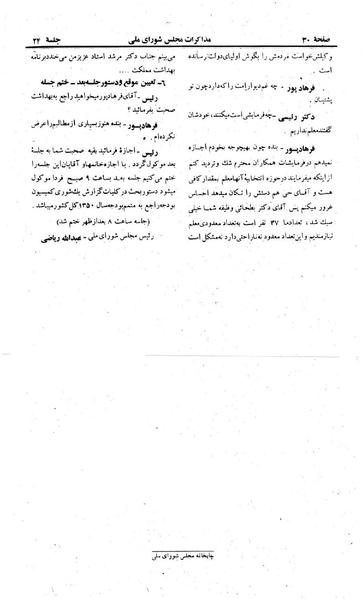 صفحه ۳۰
مذاکرات مجلس شورای ملی
جلسه ۲۴
وکیلش خواست مردمش را بگوش اولیای دولت رسانده
فرهادپور ـ چه غم دیوار امت را که دارد چون تو
پشتیبان.
دکتر رئیسی ـ چه فرمایشی است میکنند، خودشان
گفتند معلم نداریم.
فرهادپور ـ بنده چون بهیچوجه بخودم اجازه
نمیدهم در فرمایشات همکاران محترم شک و تردید کنم
از اینکه میفرمایند در حوزه انتخابیهٔ آنها معلم بمقدار کافی
هست و آقای حی هم دستش را تکان میدهد احساس
غرور میکنم پس آقای دکتر بطحائی وظیفه شما خیلی
سبک شد، تعداد ما ۳۷ نفر است به تعداد معدودی معلم
نیازمندیم و این تعداد معدود نه ناراحتی دارد نه مشکل است
می‌بینم جناب دکتر مرشد استاد عزیز من می‌خندد برنامه
بهداشت مملکت ....
۶ـ تعیین موقع و دستور جلسه بعد ـ ختم جلسه
رئیس ـ آقای فرهادپور میخواهید راجع به بهداشت
صحبت بفرمائید؟
فرهادپور ـ بنده هنوز بسیاری از مطالبم را عرض
نکرده‌ام.
رئیس ـ اجازه فرمائید بقیه صحبت شما به جلسه
بعد موکول گردد. با اجازه خانمها و آقایان این جلسه را
ختم می‌کنیم جلسه بعد ساعت ۹ صبح فردا موکول
میشود دستور بحث در کلیات گزارش یک‌شوری کمیسیون
بودجه راجع به متمم بودجه سال ۱۳۵۰ کل کشور میباشد.
(جلسه ساعت ۸ بعدازظهر ختم شد)
رئیس مجلس شورای ملی ـ عبدالله ریاضی
چاپخانه مجلس شورای ملی